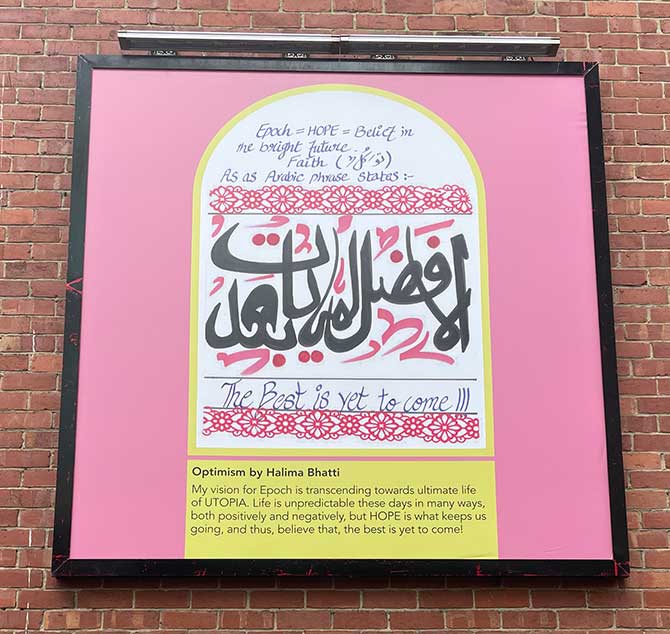 Epoch = HOPE = Belief in
the bright future.
Faith
As as Arabic phrase states :-
الافضل لم يات بعد
The Best is yet to come !!!
Optimism by Halima Bhatti
My vision for Epoch is transcending towards ultimate life
of UTOPIA. Life is unpredictable these days in many ways,
both positively and negatively, but HOPE is what keeps us
going, and thus, believe that, the best is yet to come!